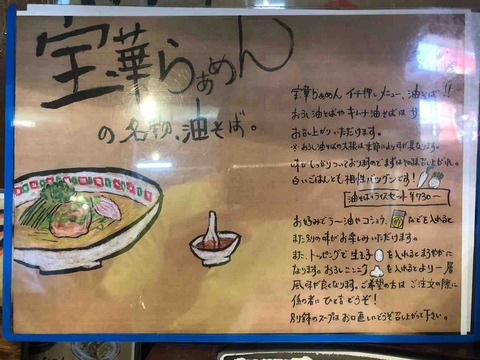 宝華らぁめん
の名物、油そば。
宝華らぁめん イチ押しメニュー、油そば!!
おろし油そばやキムチ油そばは
お召し上がりいただけます。
※おろし油そばの大根は季節により味が異なります。
味がしっかりついておりますのでまずはそのままお召し上がれ。
白いごはんとも相性バツグンです!
油そばライスセット ¥730-
お好みでラー油やコショウ、などを入れると
また別の味がお楽しみいただけます。
また、トッピングで生玉子を入れるとまろやかに
なります。おろしニンニクを入れるとより一層
風味が良くなります。ご希望の方はご注文の際に
係の者にひと言どうぞ!
別鉢のスープはお口直しにどうぞ召し上がって下さい。